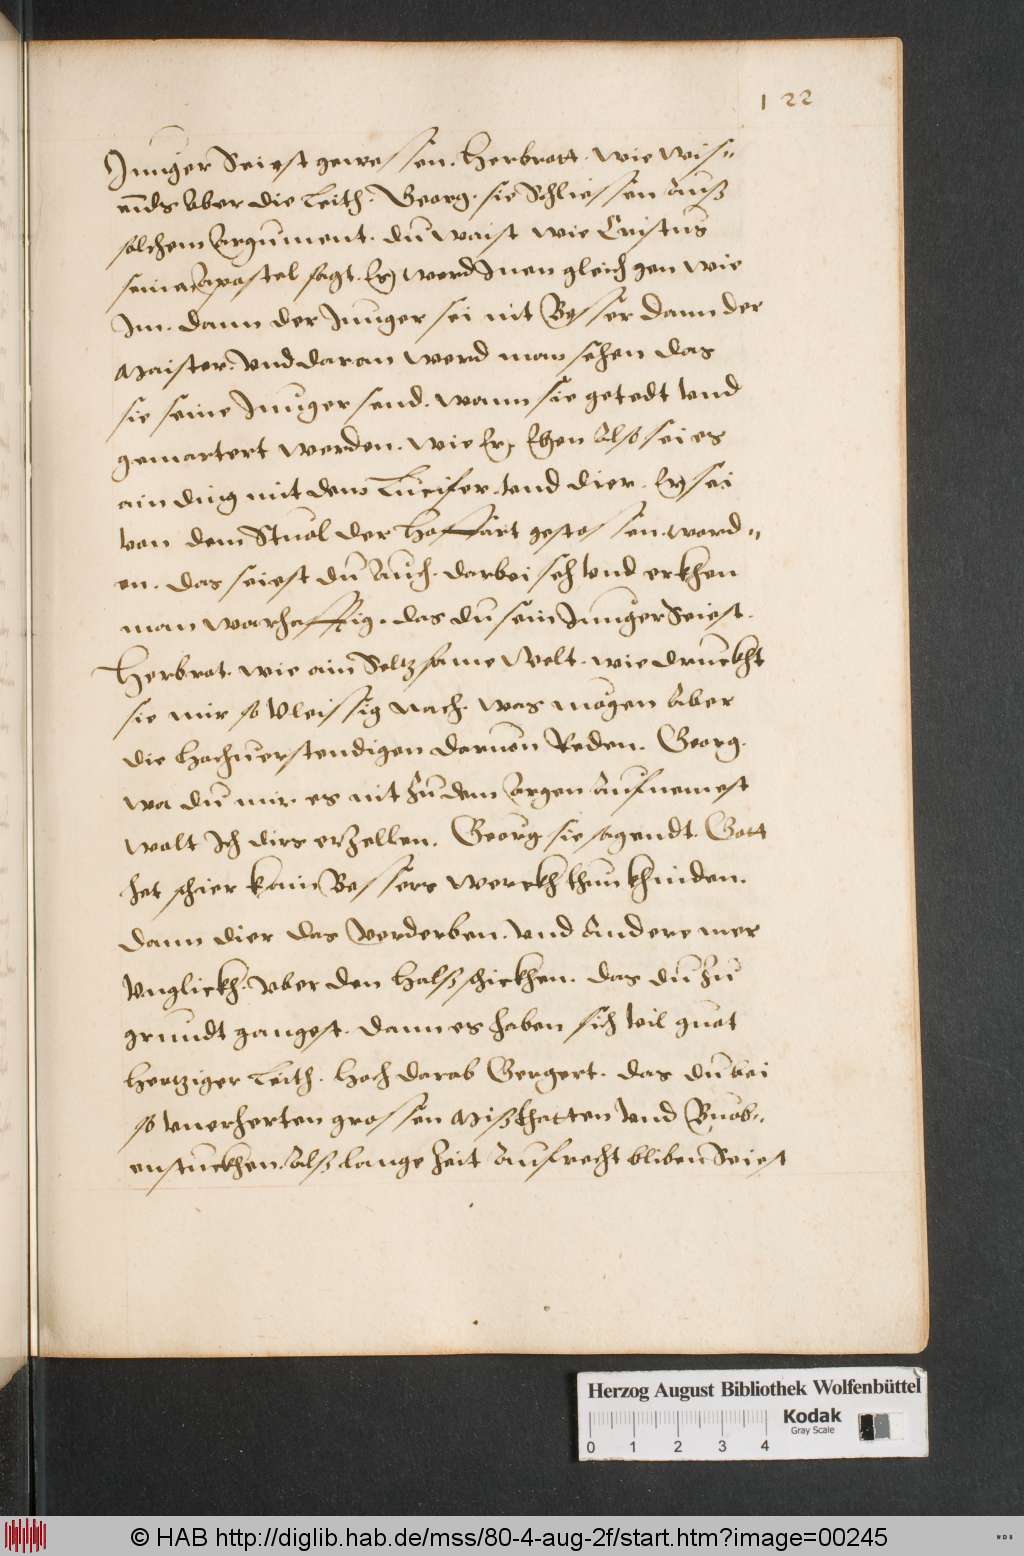 122
Junger Seiest gewessen. Herbrott. wie wis=
ends Aber die Leith. Georg. sie Schliessen Auß
solchem Argument. du waist wie Cristus
seinen Apostel sagt. Er werd Inen gleich gen wie
Im. dann der Junger sei nit Besser dann der
Maister. Vnd daran werd man sehen das
sie seine Junger send. wann sie getedt Vnd
gemartert werden. wie Er, Eben Also sei es
ain ding mit dem Lucifer. vnd dier. Er sei
von dem Stuol der Hoffart gestossen. word=
en. das seiest du Auch. darbei seh Vnd erkhen
man warhafftig. das du sein Junger Seiest.
Herbrot. wie ain Seltzsame Welt. wie druckht
sie mir so Vleissig Nach. was mögen Aber
die hochuerstendigen daruon Reden. Georg.
wa du mir es nit zu dem Argen Aufnemest
wolt Ich dirs erzellen. Georg sie sagendt. Gott
het schier kain Bessers werckh thun khinden.
dann dier das Verderben. Vnd Andere mer
Vnglickh. Vber den halß schickhen. das du zu
grundt gangest. dann es haben sich Vil guot
hertziger Leith. hoch darab Gergert. das du bei
so Vnerherten grossen Mißthatten Vnd Buob=
enstuckhen. Alß lange Zeit Aufrecht bliben Seiest
Herzog August Bibliothek Wolfenbüttel
Kodak
Gray Scale
0 1 2 3 4
© HAB http://diglib.hab.de/mss/80-4-aug-2f/start.htm?image=00245